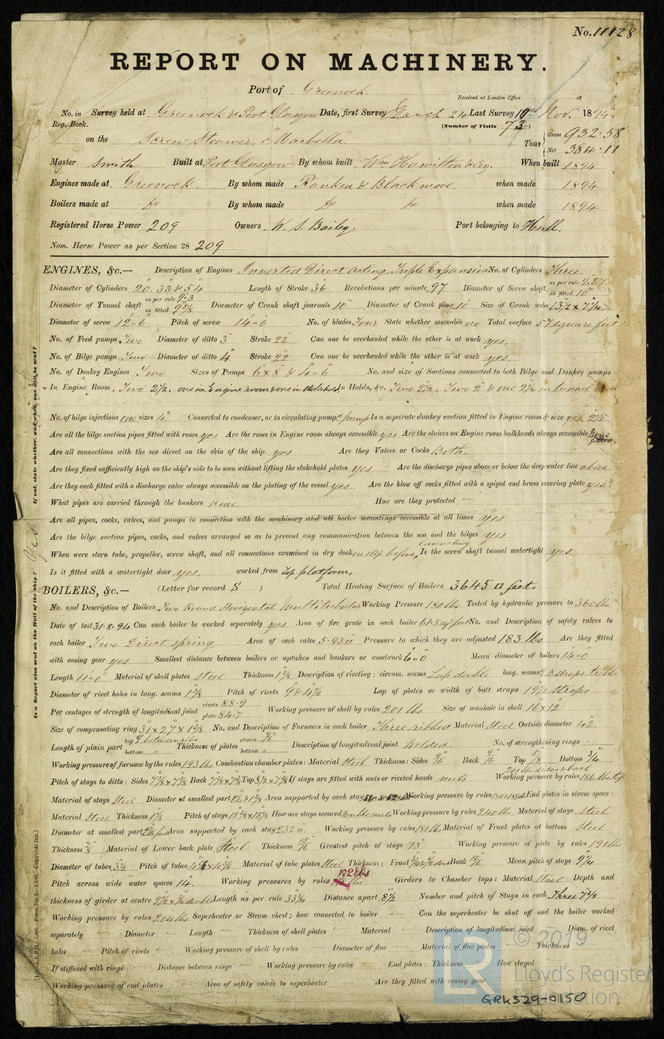 No. 11128
REPORT ON MACHINERY.
Port of Greenock.
Received at London Office
No. in Survey held at Greenock & Port Glasgow Date, first Survey March 24 Last Survey 10th Nov. 1894
Reg. Book. (Number of Visits 73)
on the Screw Steamer, "Marbella Tons Gross 932.58 Net 384.11
Master Smith Built at Port Glasgow By whom built Wm Hamilton & Co. When built 1894
Engines made at Greenock. By whom made Rankin & Blackmore. when made 1894
Boilers made at do By whom made do do when made 1894
Registered Horse Power 209 Owners W. S. Bailey. Port belonging to Hull.
Nom. Horse Power as per Section 28 209
ENGINES, &c.— Description of Engines Inverted Direct acting Triple Expansion No. of Cylinders Three
Diameter of Cylinders 20, 33 & 54 Length of Stroke 36 Revolutions per minute 97 Diameter of Screw shaft as per rule as fitted 10"
Diameter of Tunnel shaft as per rule 9.3 as fitted 9 5/8 Diameter of Crank shaft journals 10" Diameter of Crank pin 10" Size of Crank webs 13½ x 7¼
Diameter of screw 12-6 Pitch of screw 14-0 No. of blades Four State whether moveable no Total surface 57 square feet
No. of Feed pumps Two Diameter of ditto 3" Stroke 22" Can one be overhauled while the other is at work yes.
No. of Bilge pumps Two Diameter of ditto 4" Stroke 22" Can one be overhauled while the other is at work yes.
No. of Donkey Engines Two Sizes of Pumps 6 x 8 & 4 x 6 No. and size of Suctions connected to both Bilge and Donkey pumps
In Engine Room Two 2½, one in Engine room & one in Stokehold, In Holds, &c. Two 2½, Two 2 & one 2½ in tunnel
No. of bilge injections one sizes 4" Connected to condenser, or to circulating pump pump Is a separate donkey suction fitted in Engine room & size yes 2½
Are all the bilge suction pipes fitted with roses yes Are the roses in Engine room always accessible yes Are the sluices on Engine room bulkheads always accessible
Are all connections with the sea direct on the skin of the ship yes Are they Valves or Cocks Both.
Are they fixed sufficiently high on the ship's side to be seen without lifting the stokehold plates yes Are the discharge pipes above or below the deep water line above
Are they each fitted with a discharge valve always accessible on the plating of the vessel yes Are the blow off cocks fitted with a spigot and brass covering plate yes
What pipes are carried through the bunkers none How are they protected —
Are all pipes, cocks, valves, and pumps in connection with the machinery and all boiler mountings accessible at all times yes
Are the bilge suction pipes, cocks, and valves arranged so as to prevent any communication between the sea and the bilges yes
When were stern tube, propeller, screw shaft, and all connections examined in dry dock on slip before launching Is the screw shaft tunnel watertight yes
Is it fitted with a watertight door yes. worked from Top platform.
BOILERS, &c.— (Letter for record S) Total Heating Surface of Boilers 3645 □ feet.
No. and Description of Boilers Two Round Horizontal Multitubular Working Pressure 180 lbs Tested by hydraulic pressure to 360 lbs
Date of test 31.8.94 Can each boiler be worked separately yes Area of fire grate in each boiler No. and Description of safety valves to
each boiler Two Direct spring Area of each valve 5.93 □ Pressure to which they are adjusted 183 lbs Are they fitted
with easing gear yes Smallest distance between boilers or uptakes and bunkers or woodwork 6-0 Mean diameter of boilers 14-0
Length 11-0 Material of shell plates steel Thickness 1 3/8 Description of riveting: circum. seams Lap double long. seams
Diameter of rivet holes in long. seams 1 3/8 Pitch of rivets Lap of plates or width of butt straps 19½ straps
Per centages of strength of longitudinal joint rivets 88.9 plate 84.7 Working pressure of shell by rules 201 lbs Size of manhole in shell 16 x 12
Size of compensating ring 31 x 27 x 1 3/8 No. and Description of Furnaces in each boiler Three ribbed Material Steel Outside diameter
Length of plain part top bottom Thickness of plates crown bottom Description of longitudinal joint welded. No. of strengthening rings —
Working pressure of furnace by the rules 193 lbs Combustion chamber plates: Material steel Thickness: Sides 9/16 Back 9/16 Top 5/8 Bottom 3/4
Pitch of stays to ditto: Sides 7¾ x 7¾ Back 7¾ x 7¾ Top 8½ x 7¾ If stays are fitted with nuts or riveted heads nuts Working pressure by rules
Material of stays Steel Diameter at smallest part Area supported by each stay Working pressure by rules End plates in steam space:
Material Steel Thickness 1 1/8 Pitch of stays How are stays secured Working pressure by rules 240 lbs Material of stays Steel
Diameter at smallest part Area supported by each stay 237 □ Working pressure by rules 181 lbs Material of Front plates at bottom Steel
Thickness Material of Lower back plate Steel Thickness Greatest pitch of stays 13" Working pressure of plate by rules 191 lbs
Diameter of tubes 3¼ Pitch of tubes Material of tube plates Steel Thickness: Front Back Mean pitch of stays 9¼
Pitch across wide water spaces 14. Working pressures by rules 182 lbs Girders to Chamber tops: Material Steel Depth and
thickness of girder at centre Length as per rule 33¼ Distance apart 8½ Number and pitch of Stays in each Three 7¾
Working pressure by rules 204 lbs Superheater or Steam chest; how connected to boiler — Can the superheater be shut off and the boiler worked
separately — Diameter — Length Thickness of shell plates — Material Description of longitudinal joint Diam. of rivet
holes Pitch of rivets — Working pressure of shell by rules Diameter of flue Material of flue plates Thickness
If stiffened with rings Distance between rings — Working pressure by rules End plates: Thickness How stayed
Working pressure of end plates Area of safety valves to superheater Are they fitted with easing gear
© 2019
Lloyd's Register
Foundation
GRK329-0150